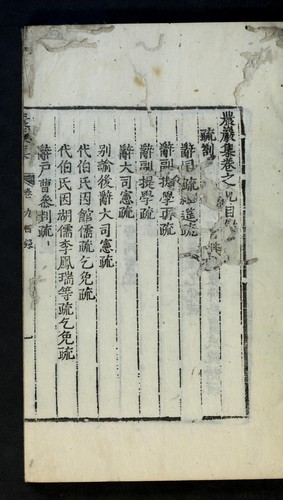 農巖集卷之九目
疏劄
辭疏
辭副提學再疏
辭副提學疏
辭大司憲疏
別諭後辭大司憲疏
代伯氏因館儒疏乞免疏
代伯氏因湖儒李鳳瑞等疏乞免疏
辭戶曹參判疏